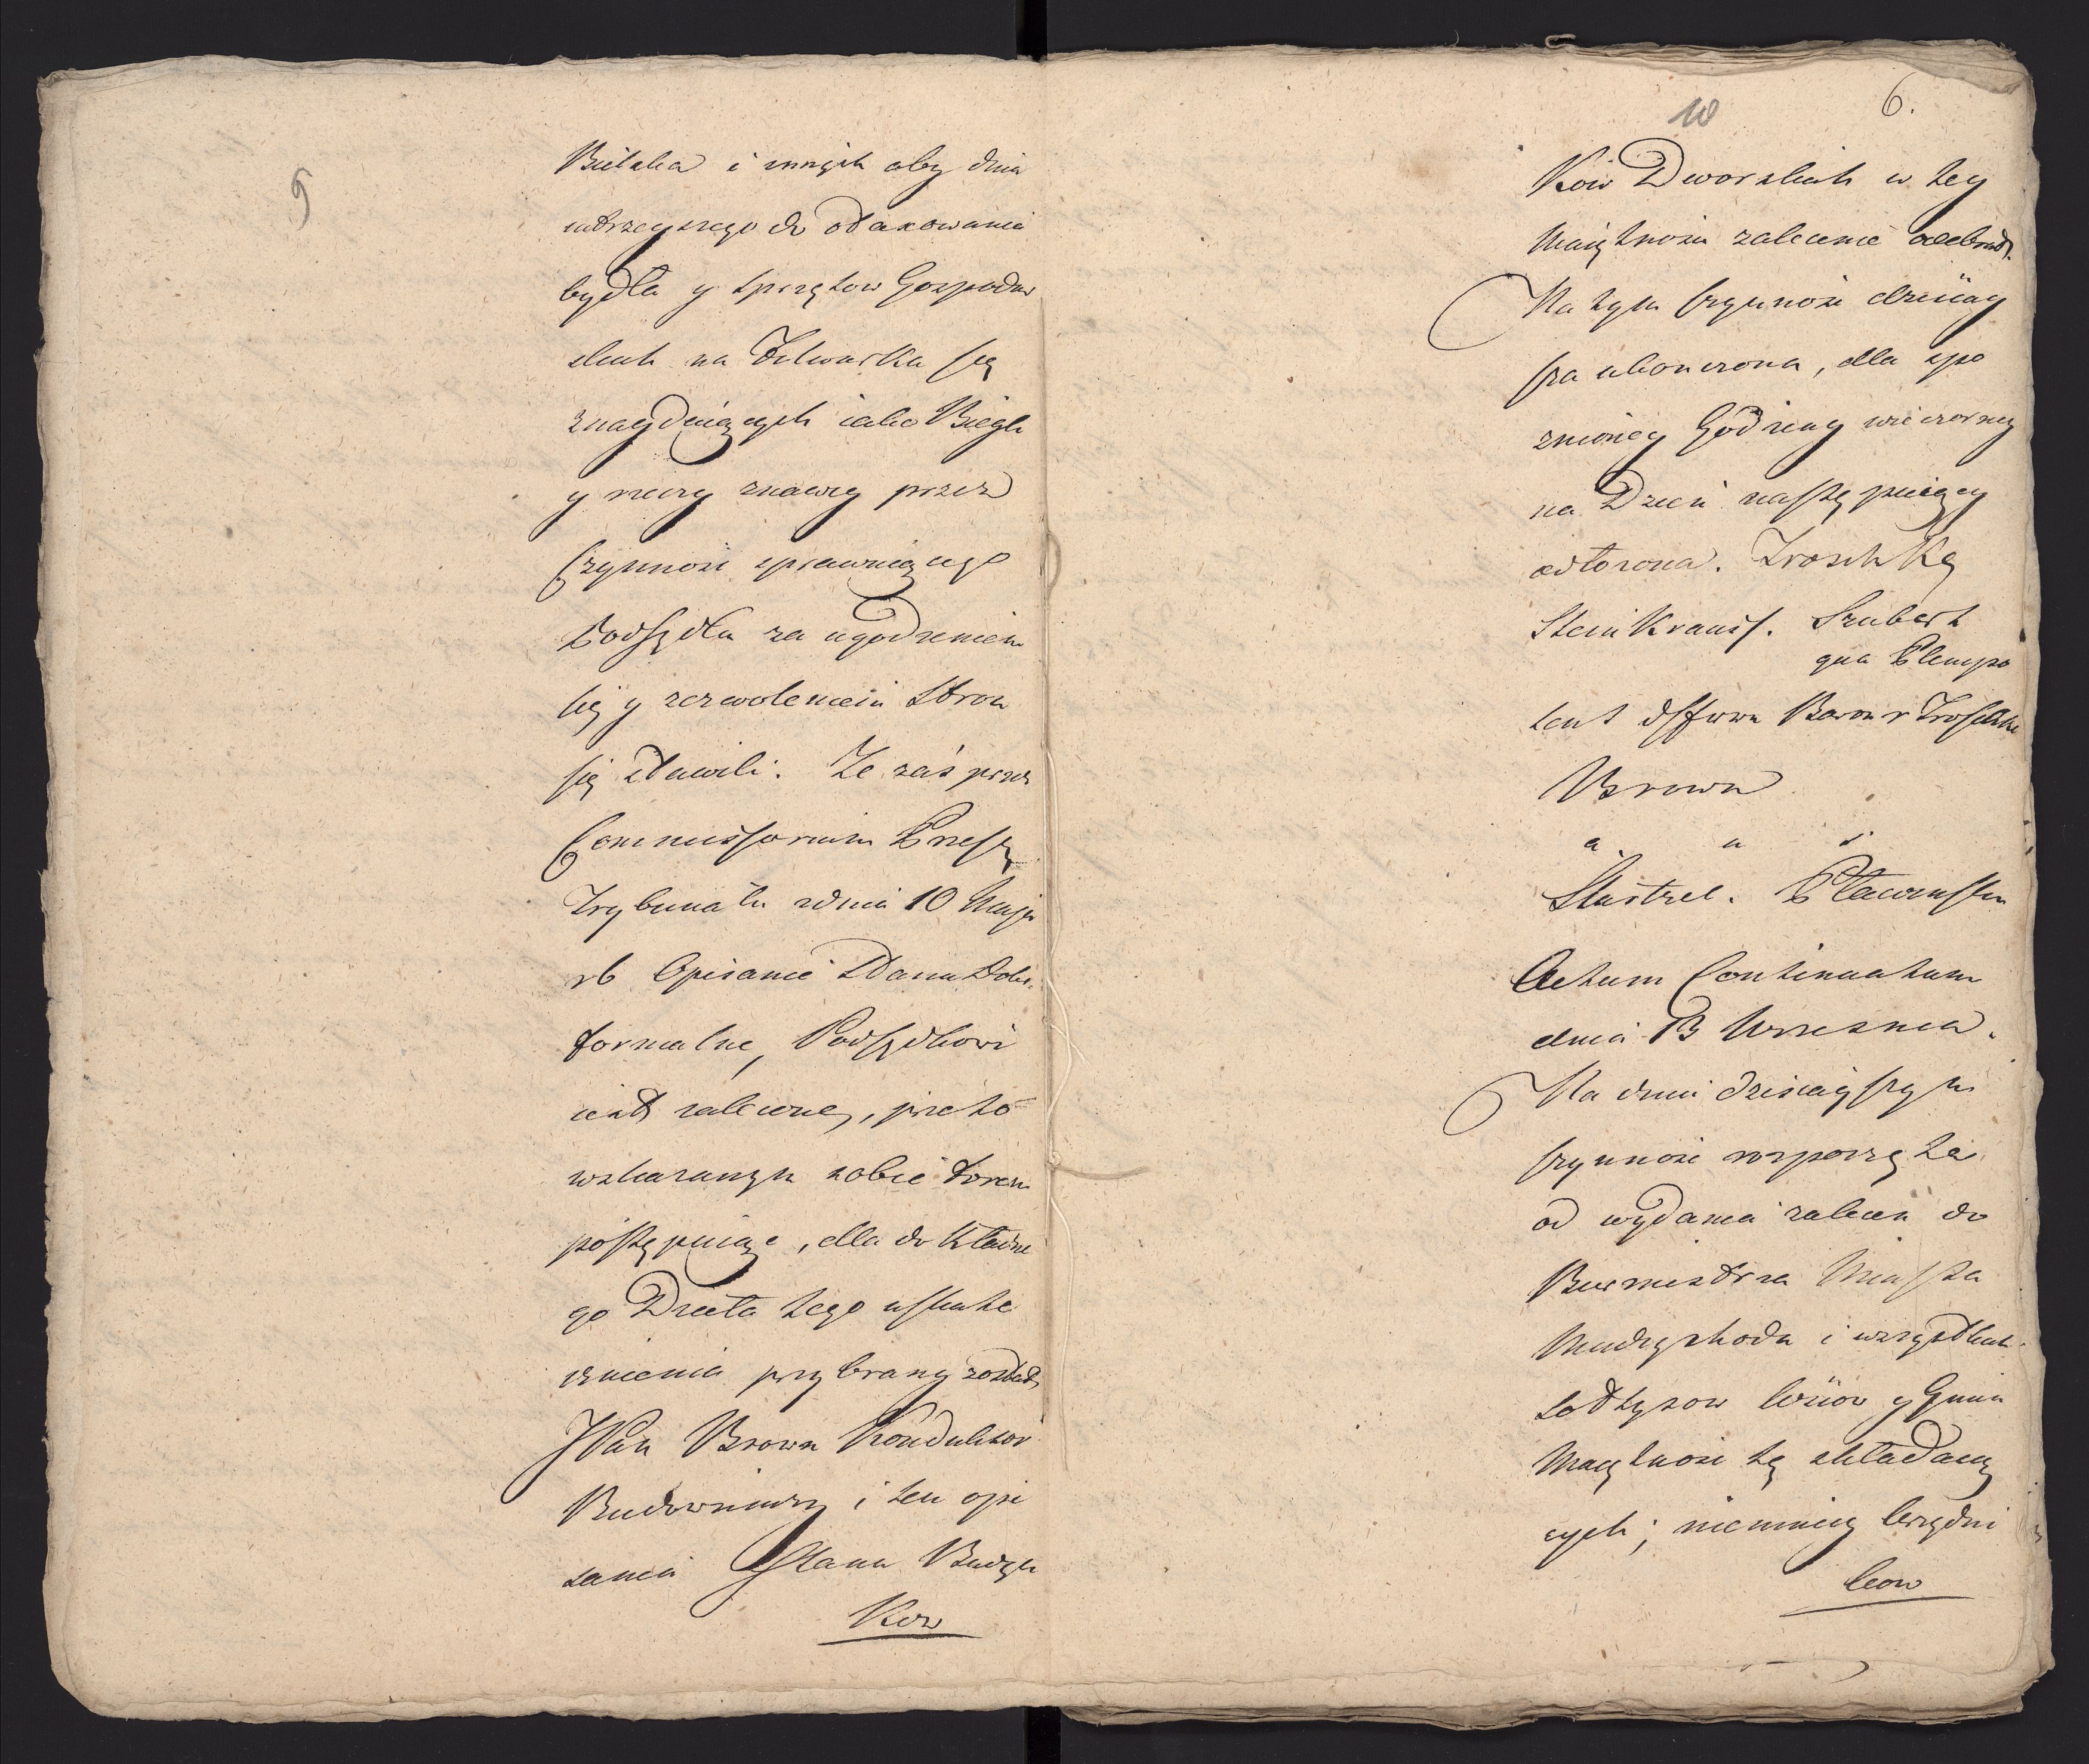 9
Bielska i innych aby dnia
iutrzeyszego do otaxowania
bydła y sprzętow Gospodar
skich na Folwarku się
znayduiących iako Biegli
y rzeczy znawcy przez
Czynność sprawuiącego
Podsędka za ugodzeniem
się y zezwoleniem Stron
się stawili. Ze zaś przez
Commissorium Preseś
Trybunału zdnia 10 Maja
rb Opisanie Stanu Dobr
formalne, Podsędkowi
iest zalecone, przeto
wskazanym sobie torem
postępuiąc, dla dokładne
go Dzieła tego uskute
cznienia przybrany został
JPan Brown Konduktor
Budowniczy i ten opi
sania Stanu Budyn
Kow
10
6.
Kow Dworskich w tey
Maiętnosci zalecenie odebrał.
Na tym Czynność dzisiey
sza ukonczona, dla spo
znioney Godziny wieczorney
na Dzień następuiący
odłożona. Troschke
Steinkrauss. Szubert
qua Plenipo
tent Baron v Troschke
Brown
a u s
Actum Continuatum
dnia 13 Wrzesnia.
Na dniu dzisieyszym
czynność rozpoczęta
od wydania zalecen do
Burmistrza Miasta
Miedzychoda i wszystkich
sołtysow Wsiow y Gmin
Maiętnosc tę składaią
cych; niemniey Urzędni
kow